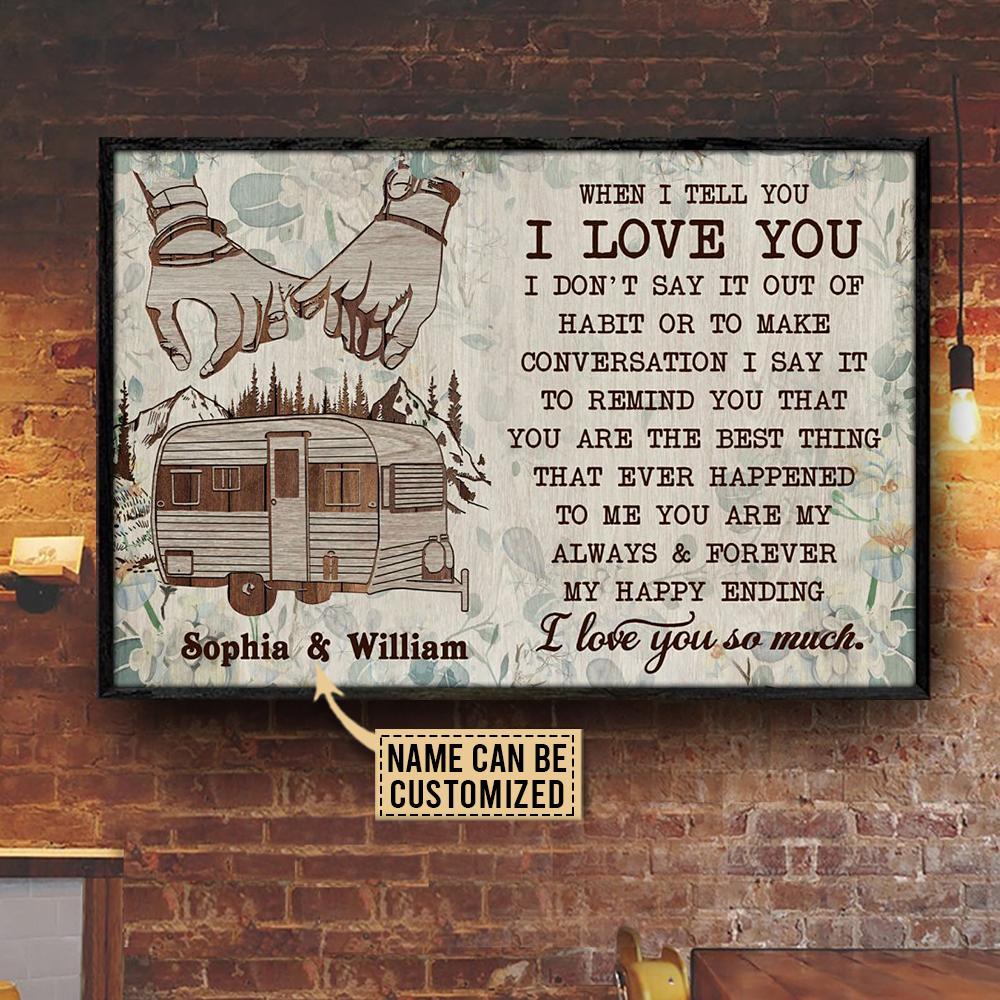 WHEN I TELL YOU
I LOVE YOU
I DON'T SAY IT OUT OF
HABIT OR TO MAKE
CONVERSATION I SAY IT
TO REMIND YOU THAT
YOU ARE THE BEST THING
THAT EVER HAPPENED
TO ME YOU ARE MY
ALWAYS & FOREVER
MY HAPPY ENDING
I love you so much.
Sophia & William
NAME CAN BE
CUSTOMIZED